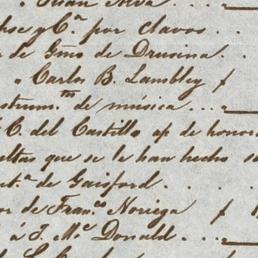 Juan Alva . . .
hse y Cª por clavos .
r de Gmo de Drusina . .
" Carlos B. Lambley f
strumtos de música . . .
C. del Castillo ap. de honor
eltas que se le han hecho s
etª de Gaisford . . .
or de Franco Noriega f
á J. Mc Donald . . .